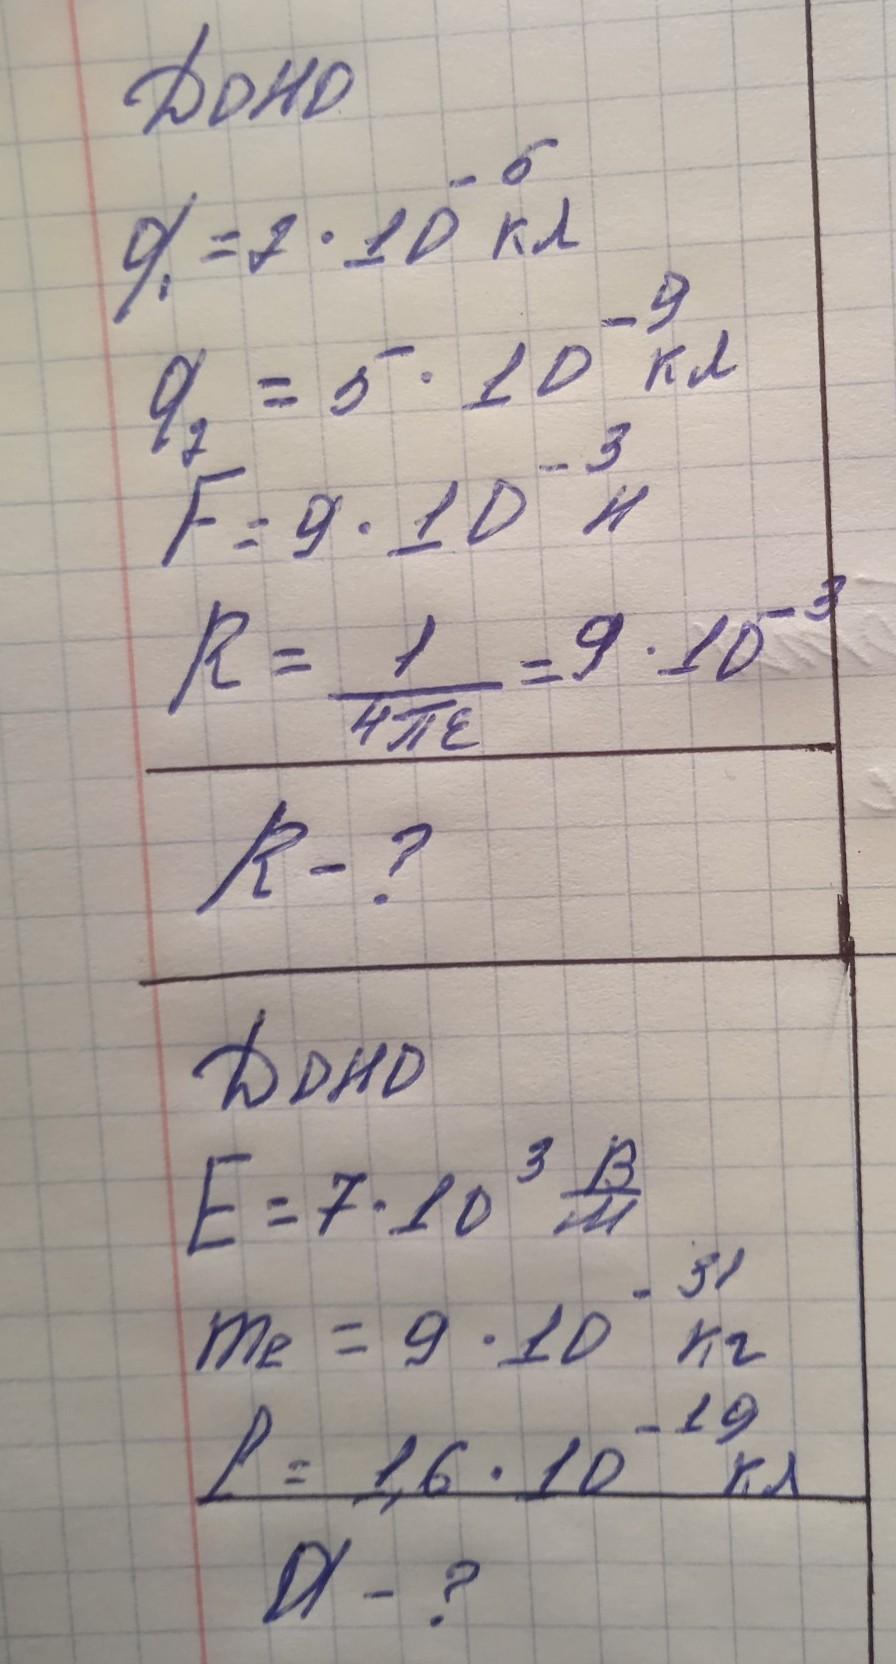 Дано
q₁ = 2 · 10⁻⁶ кл
q₂ = 5 · 10⁻⁹ кл
F = 9 · 10⁻³ Н
R = 1/4πε = 9 · 10⁻³
R - ?
Дано
E = 7 · 10³ В/м
me = 9 · 10⁻³¹ кг
l = 1,6 · 10⁻¹⁹ кл
a - ?